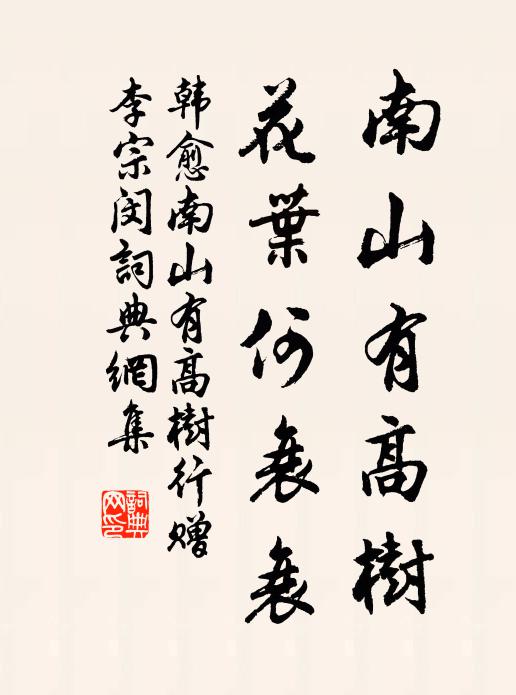 南山有高樹
花葉何衰衰
韩愈南山有高樹行赠
李宗闵詞典網集
詞典
网印